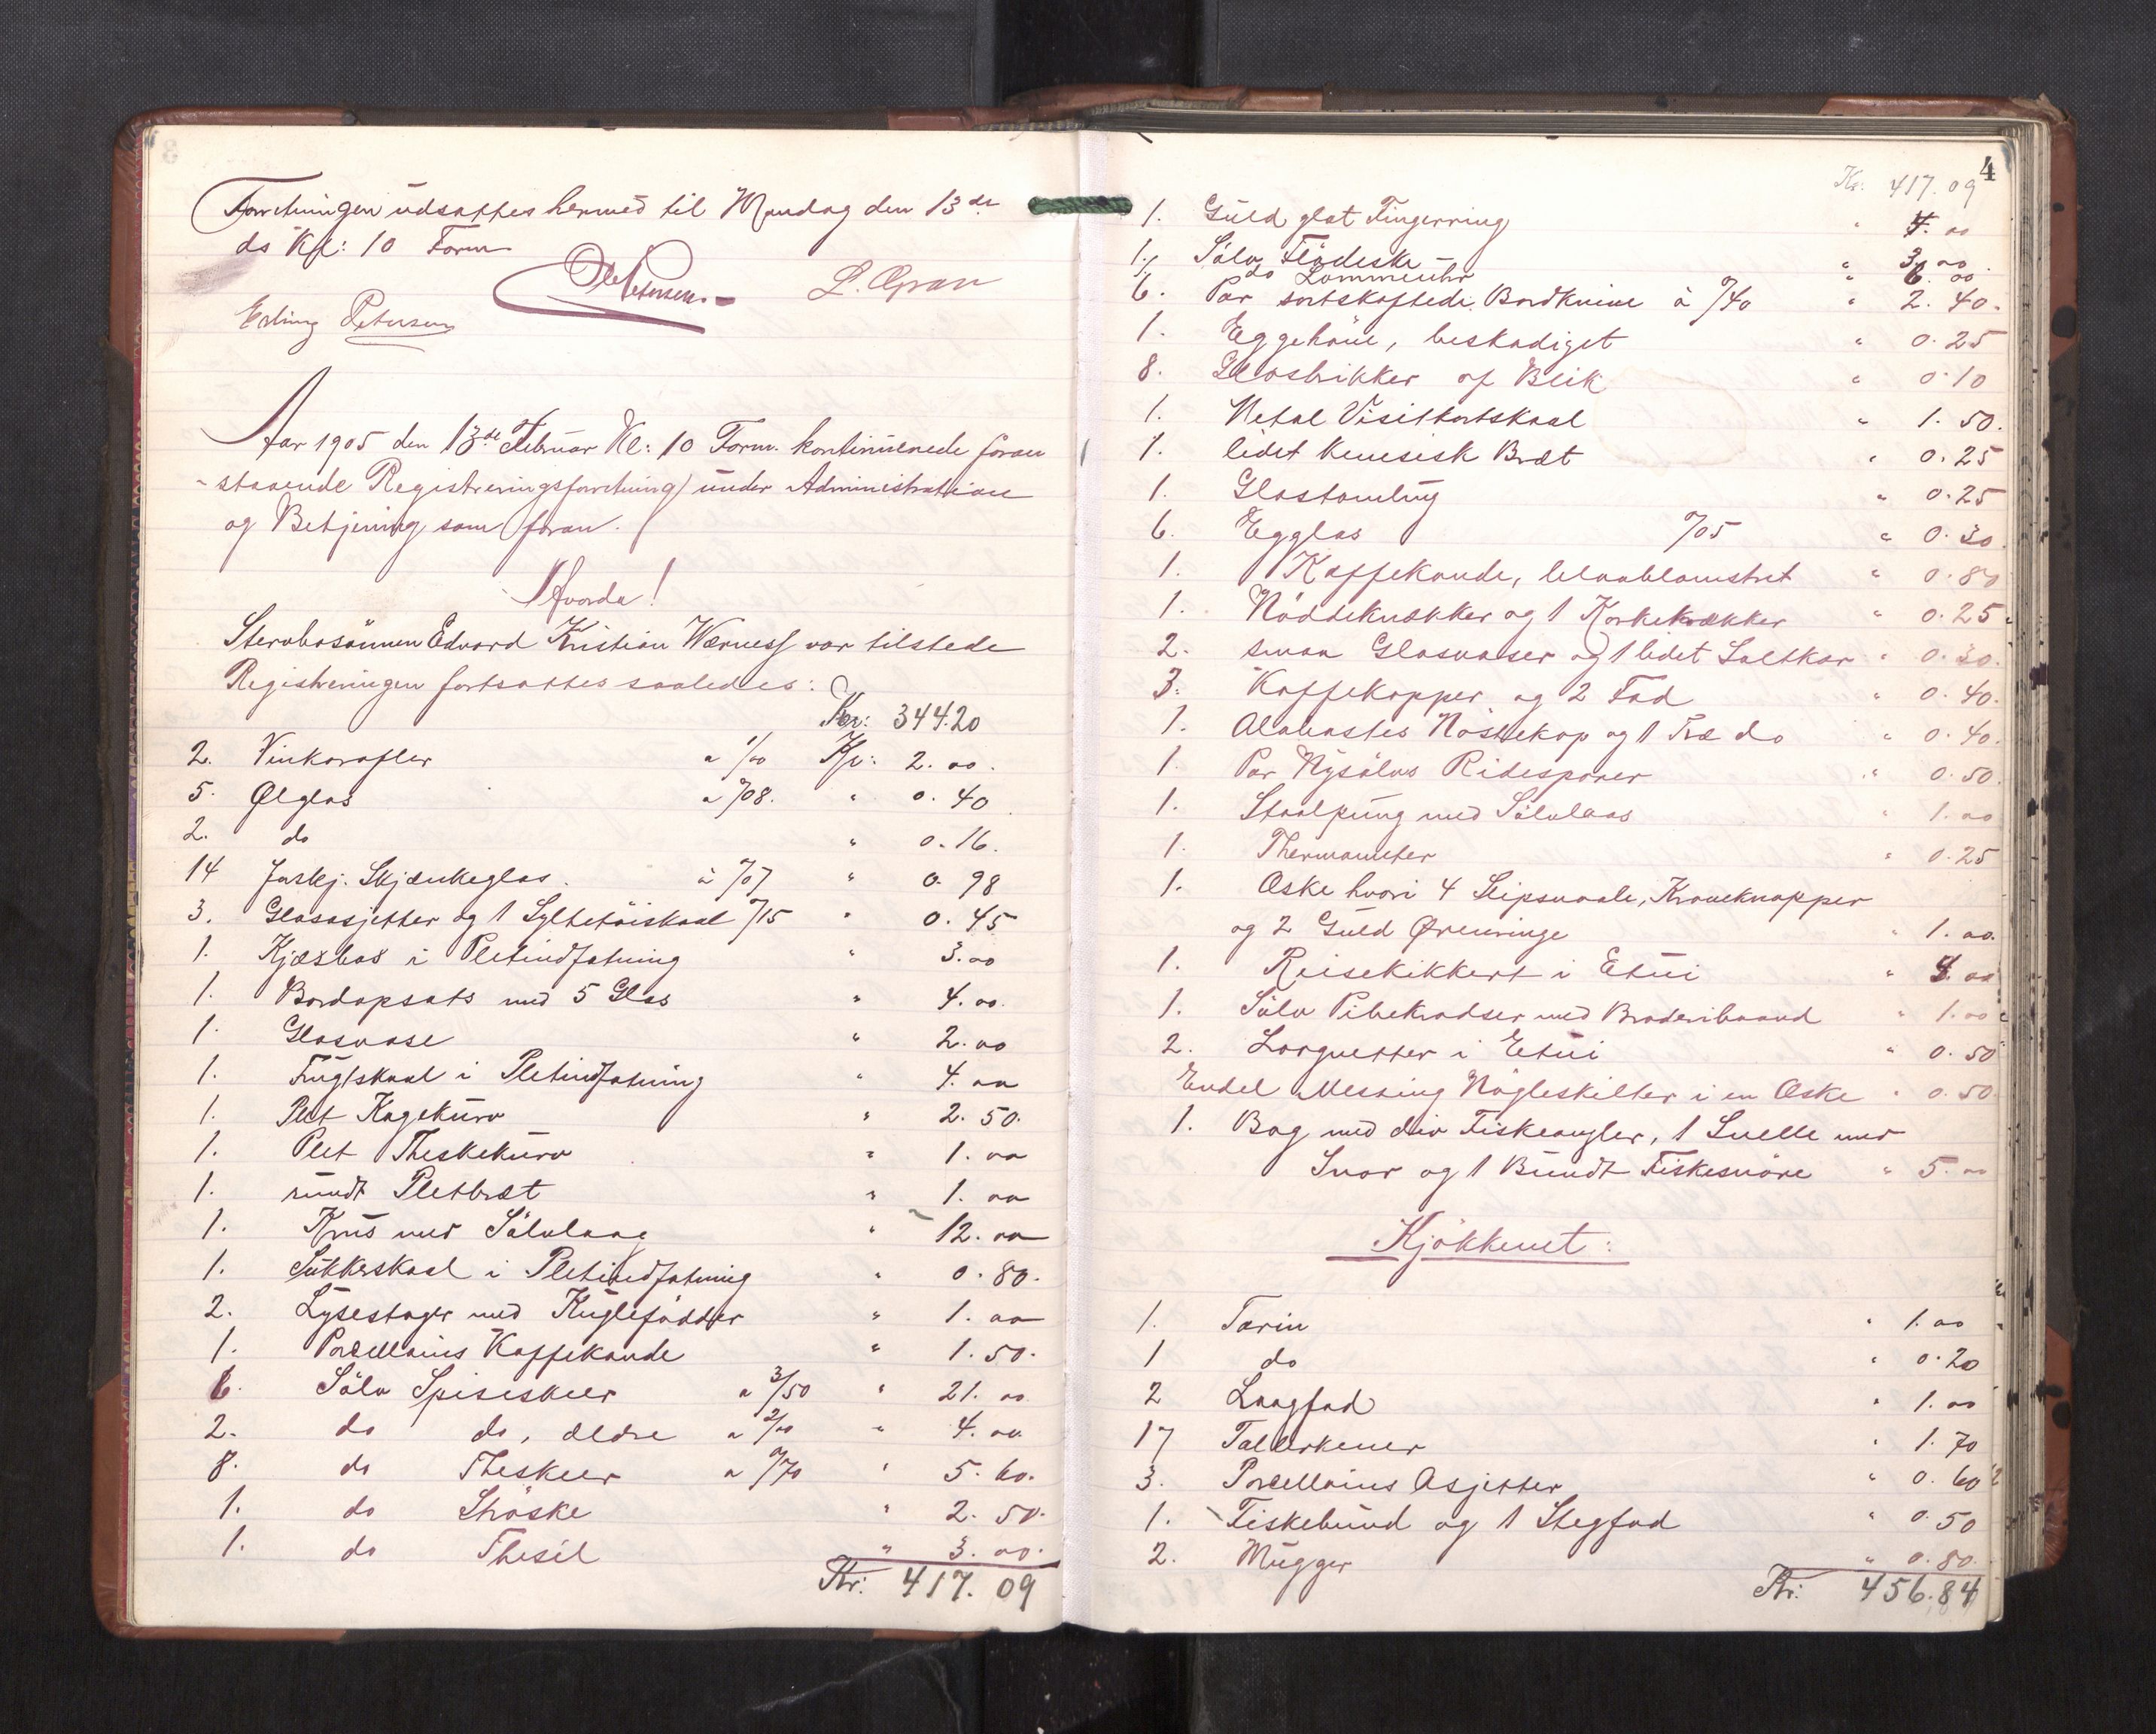 Forretningen udsattes hermed til Mandag den 13de
ds Kl: 10 Form
Petersen. L. Gran
Erling Petersen
Aar 1905 den 13de Februar Kl: 10 Form. kontinuerede foran
-staaende Registreringsforretning under Administration
og Betjening som foran.
Hvorda!
Stervbosönnen Edvard Kristian Værness var tilstede
Registreringen fortsattes saaledes:
Kr: 344.20
2. Vinkarafler a 1/00 Kr: 2.00.
5. Ølglas a 0/08. " 0.40
2. do " 0.16.
14 Forskj. Skjænkeglas. à 0/07 " 0.98
3. Glasasjetter og 1 Syltetöiskaal 0/15 " 0.45
1. Kjæxbox i Pletindfatning " 3.00
1. Bordopsats med 5 Glas " 4.00.
1. Glasvase " 2.00
1. Frugtskaal i Pletindfatning " 4.00
1. Plet Kagekurv " 2.50.
1. Plet Theskekurv " 1.00
1. rundt Pletbræt " 1.00
1. Krus med Sölvlaag " 12.00
1. Sukkerskaal i Pletindfatning " 0.80.
2. Lysestager med Kuglefödder " 1.00
1. Porcellains Kaffekande " 1.50.
6. Sölv Spiseskeer a 3/50 " 21.00
2. do do, ældre a 2/00 " 4.00
8. do Theskeer a 0/70 " 5.60.
1. do Ströske " 2.50.
1. do Thesil " 3.00.
Kr: 417.09
4
Kr: 417.09
1. Guld glat Fingerring " 4.00
1. Sölv Flödeske " 3.00
1. do Lommeuhr " 6.00
6. Par sortskaftede Bordknive à 0/40 " 2.40.
1. Eggehöne, beskadiget " 0.25
8. Glasbrikker af Blik " 0.10
1. Metal Visitkortskaal " 1.50.
1. lidet kinesisk Bræt " 0.25
1. Glastamling " 0.25
6. Egglas 0/05 " 0.30.
1. Kaffekande, blaablomstret " 0.80
1. Nöddeknækker og 1 Korketrækker " 0.25
2. smaa Glasvaser og 1 lidet Saltkar " 0.30.
3. Kaffekopper og 2 Fad " 0.40.
1. Alabastes Nöstekop og 1 Træ do " 0.40.
1. Par Nysölvs Ridesporer " 0.50.
1. Staalpung med Sölvlaas " 1.00
1. Thermometer " 0.25
1. Æske hvori 4 Slipsnaale, Kraveknapper
og 2 Guld Ørenringe " 1.00.
1. Reisekikkert i Etui " 4.00
1. Sölv Pibekradser med Broderibaand " 1.00
2. Lorgnetter i Etui " 0.50
Endel Messing Nögleskilter i en Æske " 0.50
1. Bag med div Fiskeangler, 1 Snelle med
Snor og 1 Bundt Fiskesnöre " 5.00
Kjökkenet:
1. Tærin " 1.00
1 do " 0.20
2 Laagfad " 1.00
17 Tallerkener " 1.70
3. Porcellains Asjetter " 0.60
1. Fiskebund og 1 Stegfad " 0.50
2. Mugger " 0.80.
Kr: 456.84